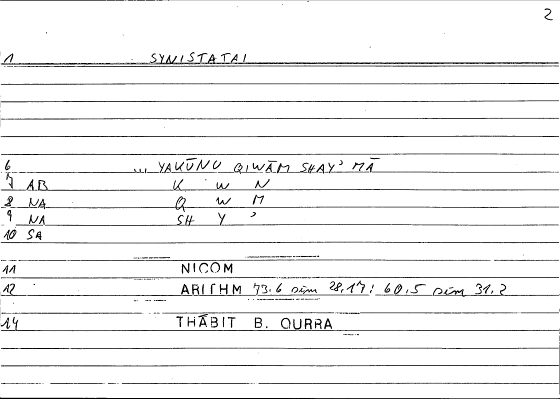 2
1 SYNISTATAI
6 ... YAKŪNU QIWĀM SHAYʾ MĀ
7 AB K W N
8 NA Q W M
9 NA SH Y ʾ
10 SA
11 NICOM
12 ARITHM 73.6 sim 28,17; 60,5 sim 31.2
14 THĀBIT B. QURRA